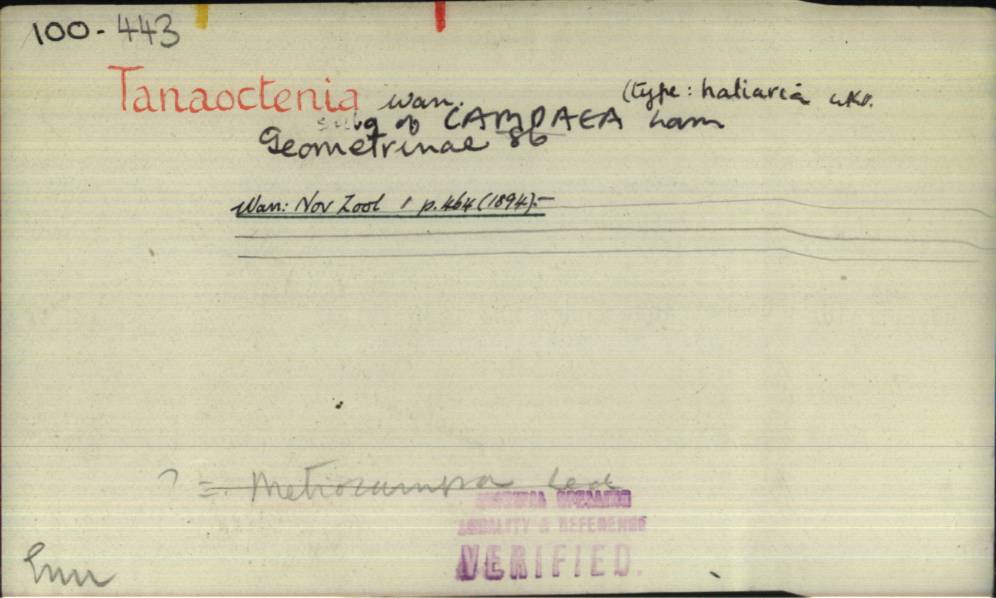 100-443
Tanaoctenia Warr. (type: haliaria Wkr.
subg of CAMPAEA Lam
Geometrinae 86
Warr: Nov Zool 1 p.464 (1894):-
? = Metrocampa
LOCALITY & REFERENCE
VERIFIED.